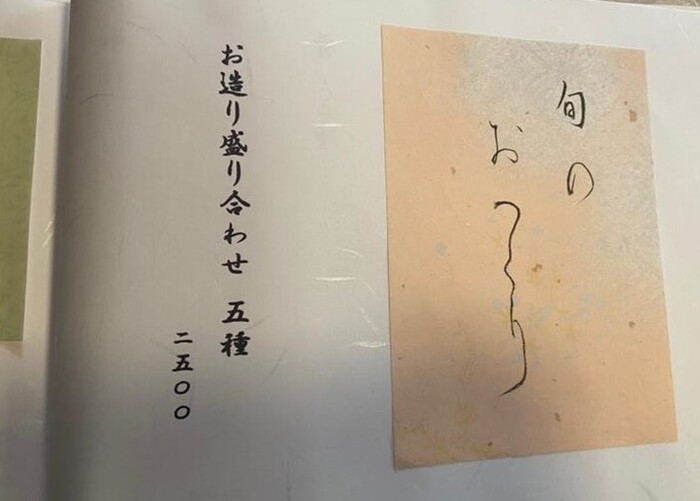 旬の
おつくり
お造り盛り合わせ 五種
二五〇〇